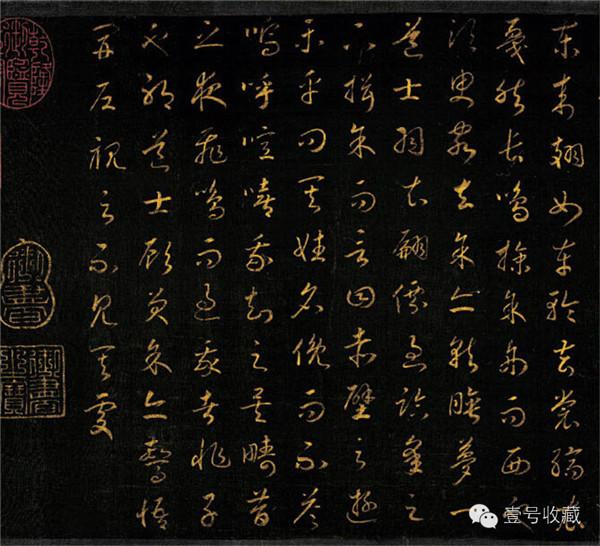 東来翅如車輪玄裳縞衣
戛然長鳴掠余舟而西也
須臾客去余亦就睡夢一
道士羽衣翩僊過臨皋之
下揖余而言曰赤壁之遊
樂乎問其姓名俛而不答
嗚呼噫嘻我知之矣疇昔
之夜飛鳴而過我者非子
也耶道士顧笑余亦驚悟
開户視之不見其處
御書
御書之寶
壹号收藏